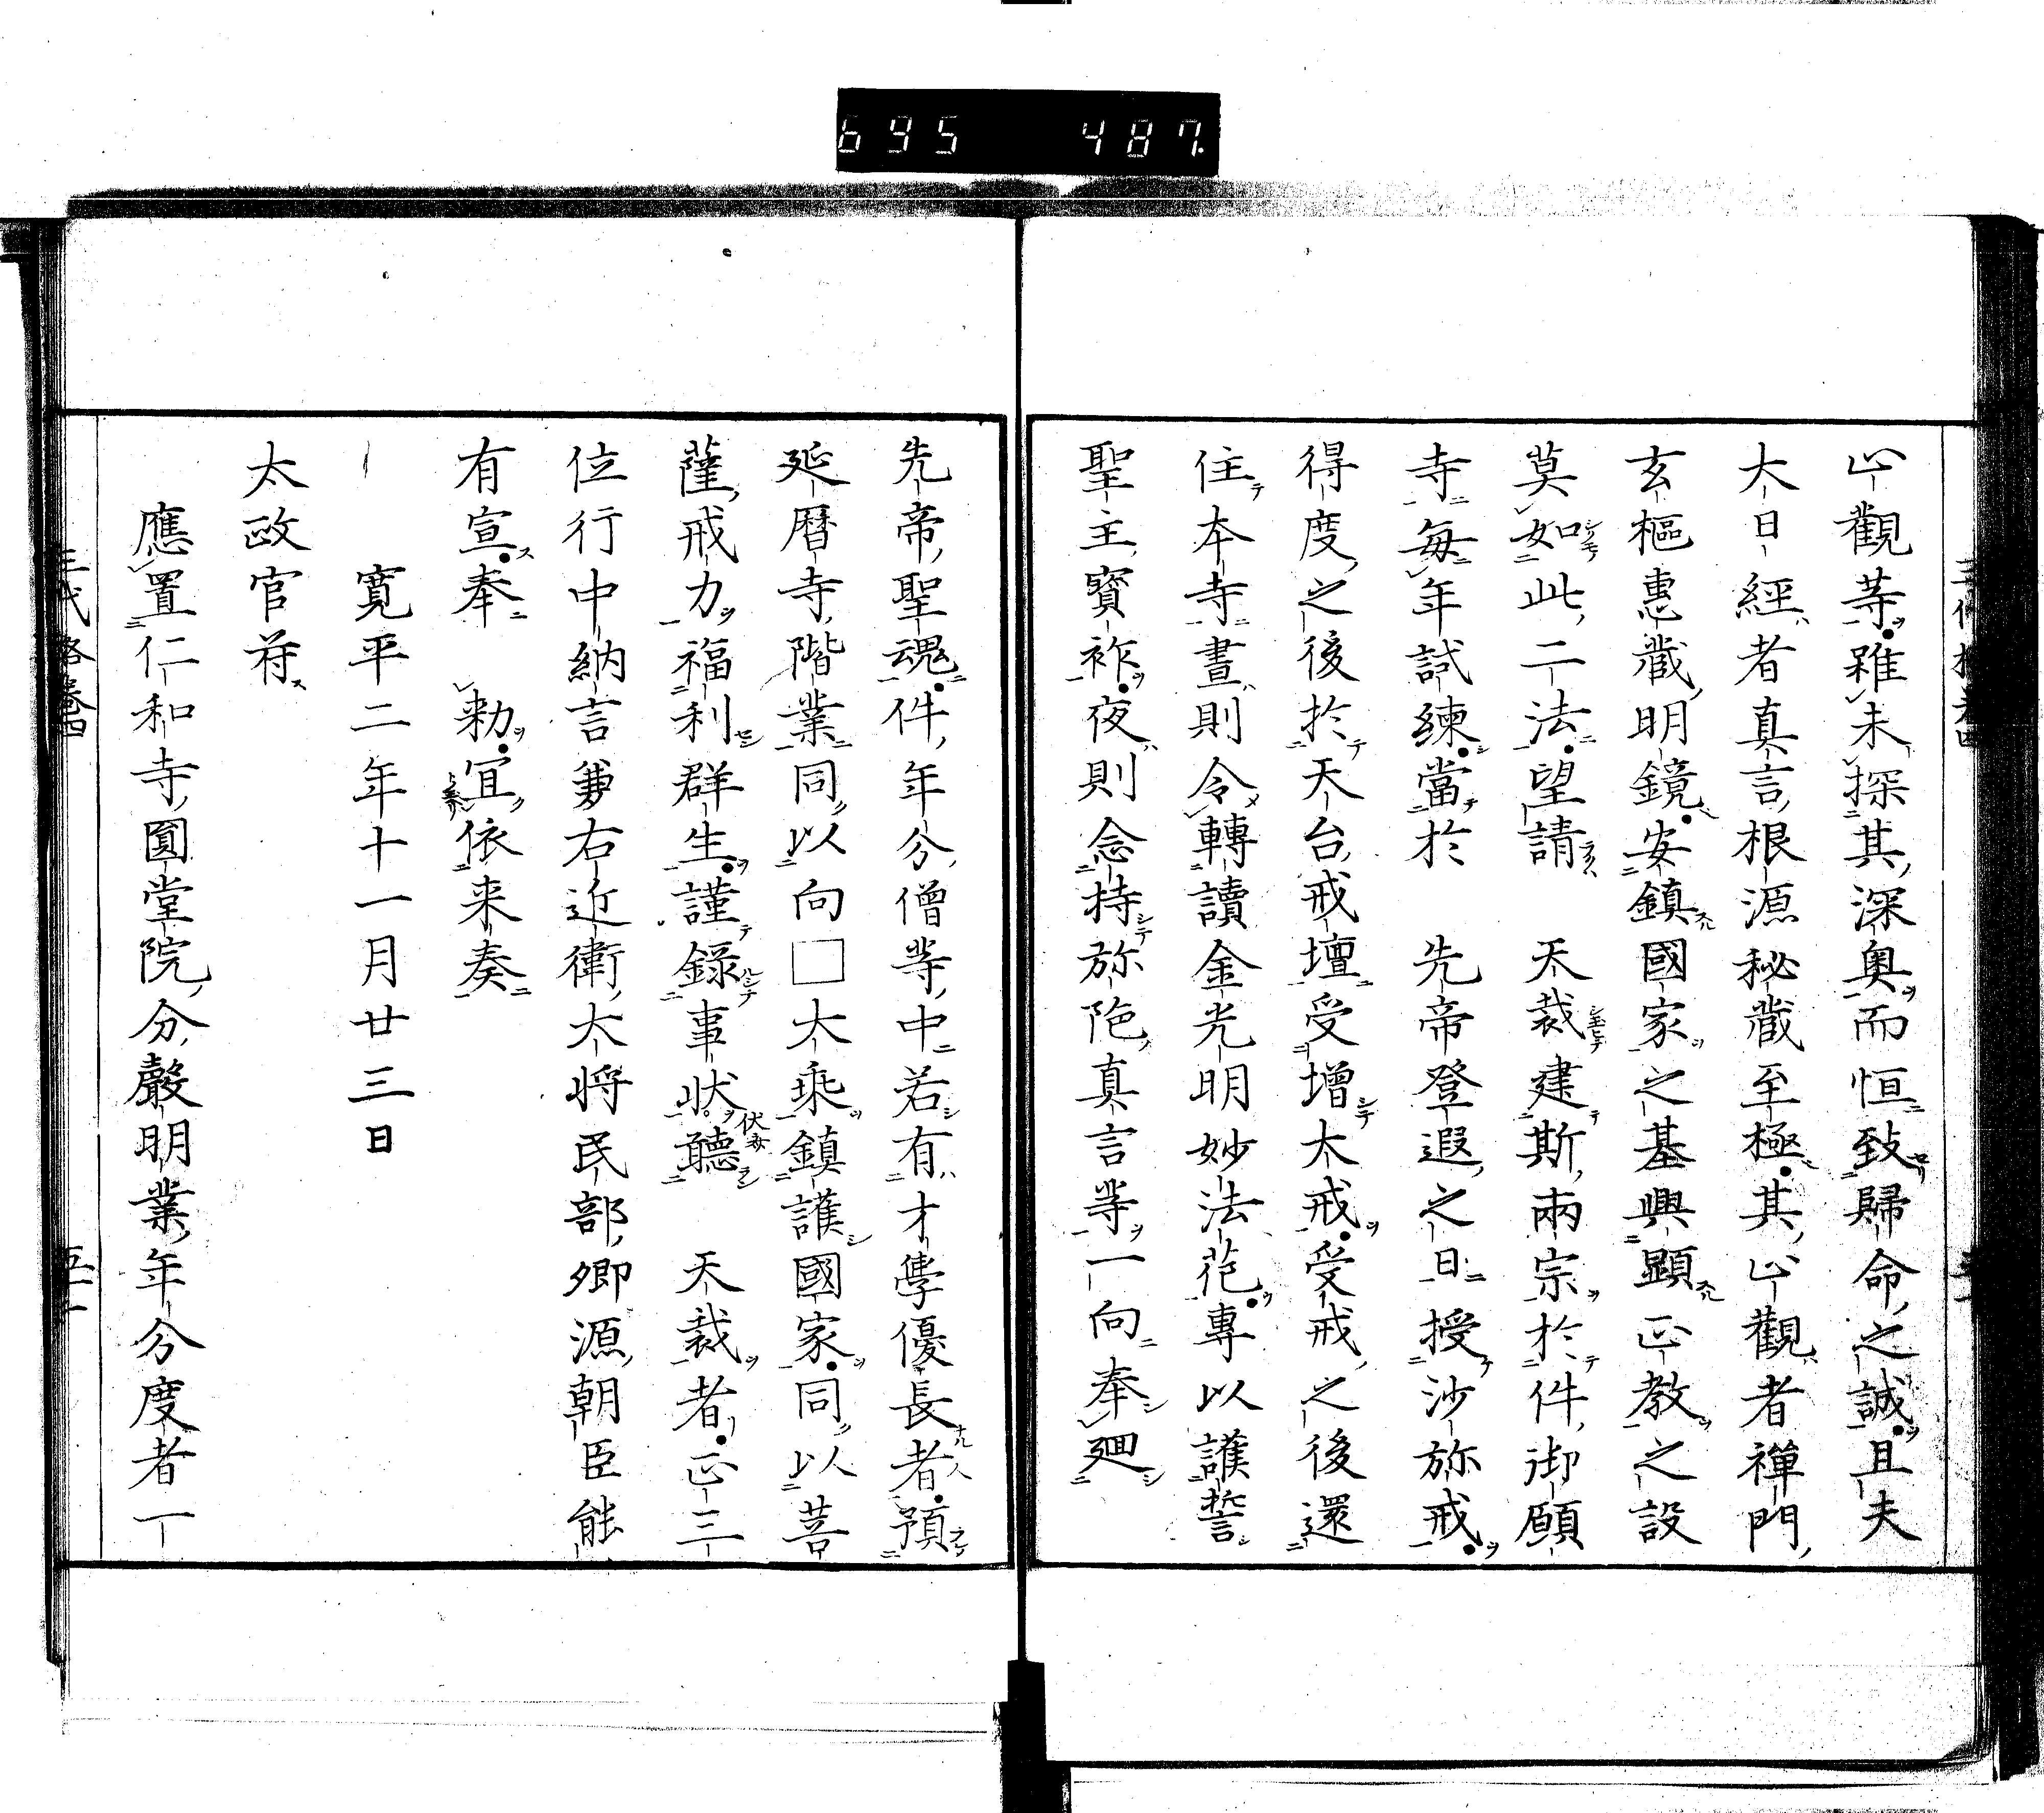 695 487
止觀等雖未探其深奧而恒致歸命之誠且夫
大日經者真言根源秘藏至極其止觀者禪門
玄樞惠藏明鏡安鎮國家之基興顯正教之設
莫如此二法望請 天裁建斯兩宗於件御願
寺每年試練當於 先帝登遐之日授沙弥戒
得度之後於天台戒壇受增大戒受戒之後還
住本寺晝則令轉讀金光明妙法花專以護誓
聖主寶祚夜則念持弥陁真言等一向奉廻
先帝聖魂件年分僧等中若有才學優長者預
延曆寺階業同以向□大乘鎮護國家同以菩
薩戒力福利群生謹錄事狀聽 天裁者正三
位行中納言兼右近衛大将民部卿源朝臣能
有宣奉 勅宜依来奏
寛平二年十一月廿三日
太政官符
應置仁和寺圓堂院分聲明業年分度者一
三代格卷四